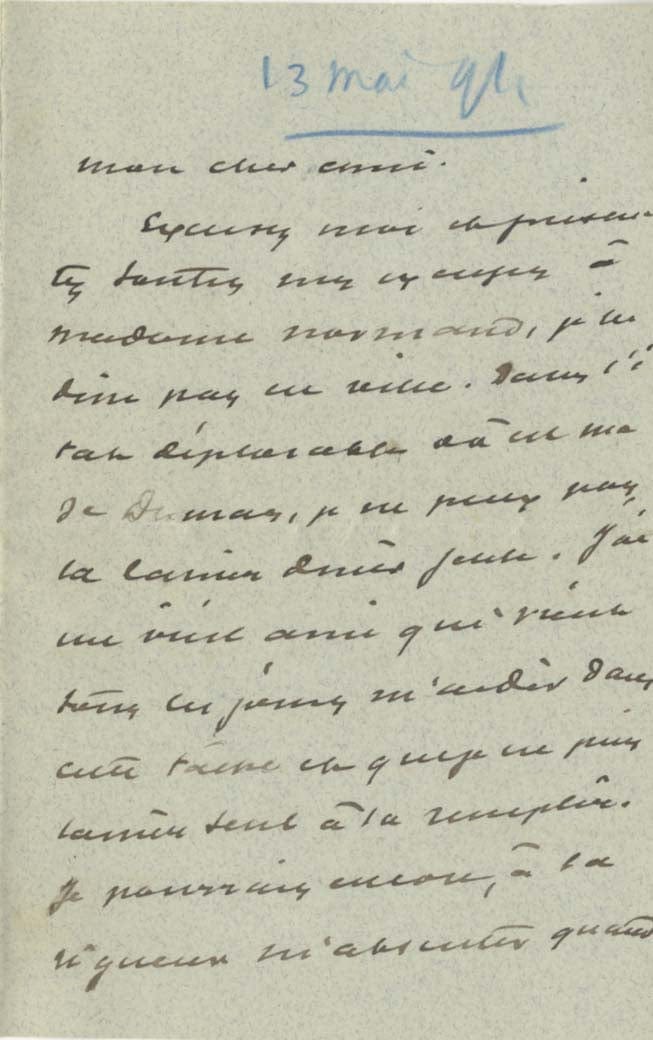 13 mai 94
mon cher ami.
Excusez moi et présen
tez toutes mes excuses à
madame normand, je ne
dine pas en ville. Dans l'é
tat déplorable où est ma
je ne peux pas
la laisser diner seule. J'ai
un vieil ami qui vient
tous les jours m'aider dans
cette tache et que je ne puis
laisser seul à la remplir.
Je pourrais encore, à la
rigueur m'absenter quand